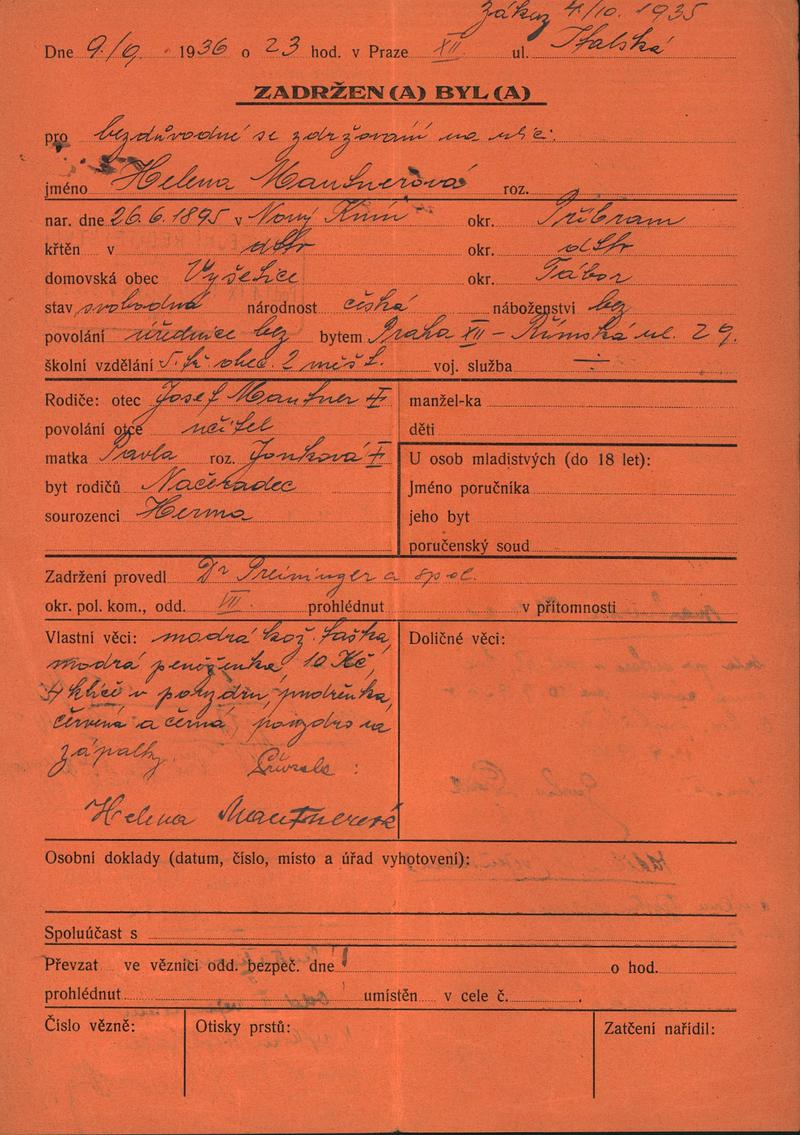 zákaz 4/10. 1935
Dne 9./9. 1936 o 23 hod. v Praze XII ul. Italská
ZADRŽEN(A) BYL(A)
pro bezdůvodné se zdržování na ulici.
jméno Helena Mautnerová roz.
nar. dne 26.6.1895 v Nový Knín okr. Příbram
křtěn v dtto okr. dtto
domovská obec Vyšetice okr. Tábor
stav svobodná národnost česká náboženství bez
povolání úřednice bez bytem Praha XII - Římská ul. 29.
školní vzdělání 5. tř. obec. 2 měšť. voj. služba
Rodiče: otec Josef Mautner manžel-ka
povolání otce učitel děti
matka Pavla roz. Jonková U osob mladistvých (do 18 let):
byt rodičů Načeradec Jméno poručníka
sourozenci Herma jeho byt
poručenský soud
Zadržení provedl Dr Preininger a spol.
okr. pol. kom., odd. VII. prohlédnut v přítomnosti
Vlastní věci: modrá kož. taška, Doličné věci:
modrá peněženka, 10 Kč,
4 klíče v pouzdru, pudřenka,
červená a černá, pouzdro na
zápalky.
Helena Mautnerová
Osobní doklady (datum, číslo, místo a úřad vyhotovení):
Spoluúčast s
Převzat ve věznici odd. bezpeč. dne o hod.
prohlédnut umístěn v cele č.
Číslo vězně: Otisky prstů: Zatčení nařídil: